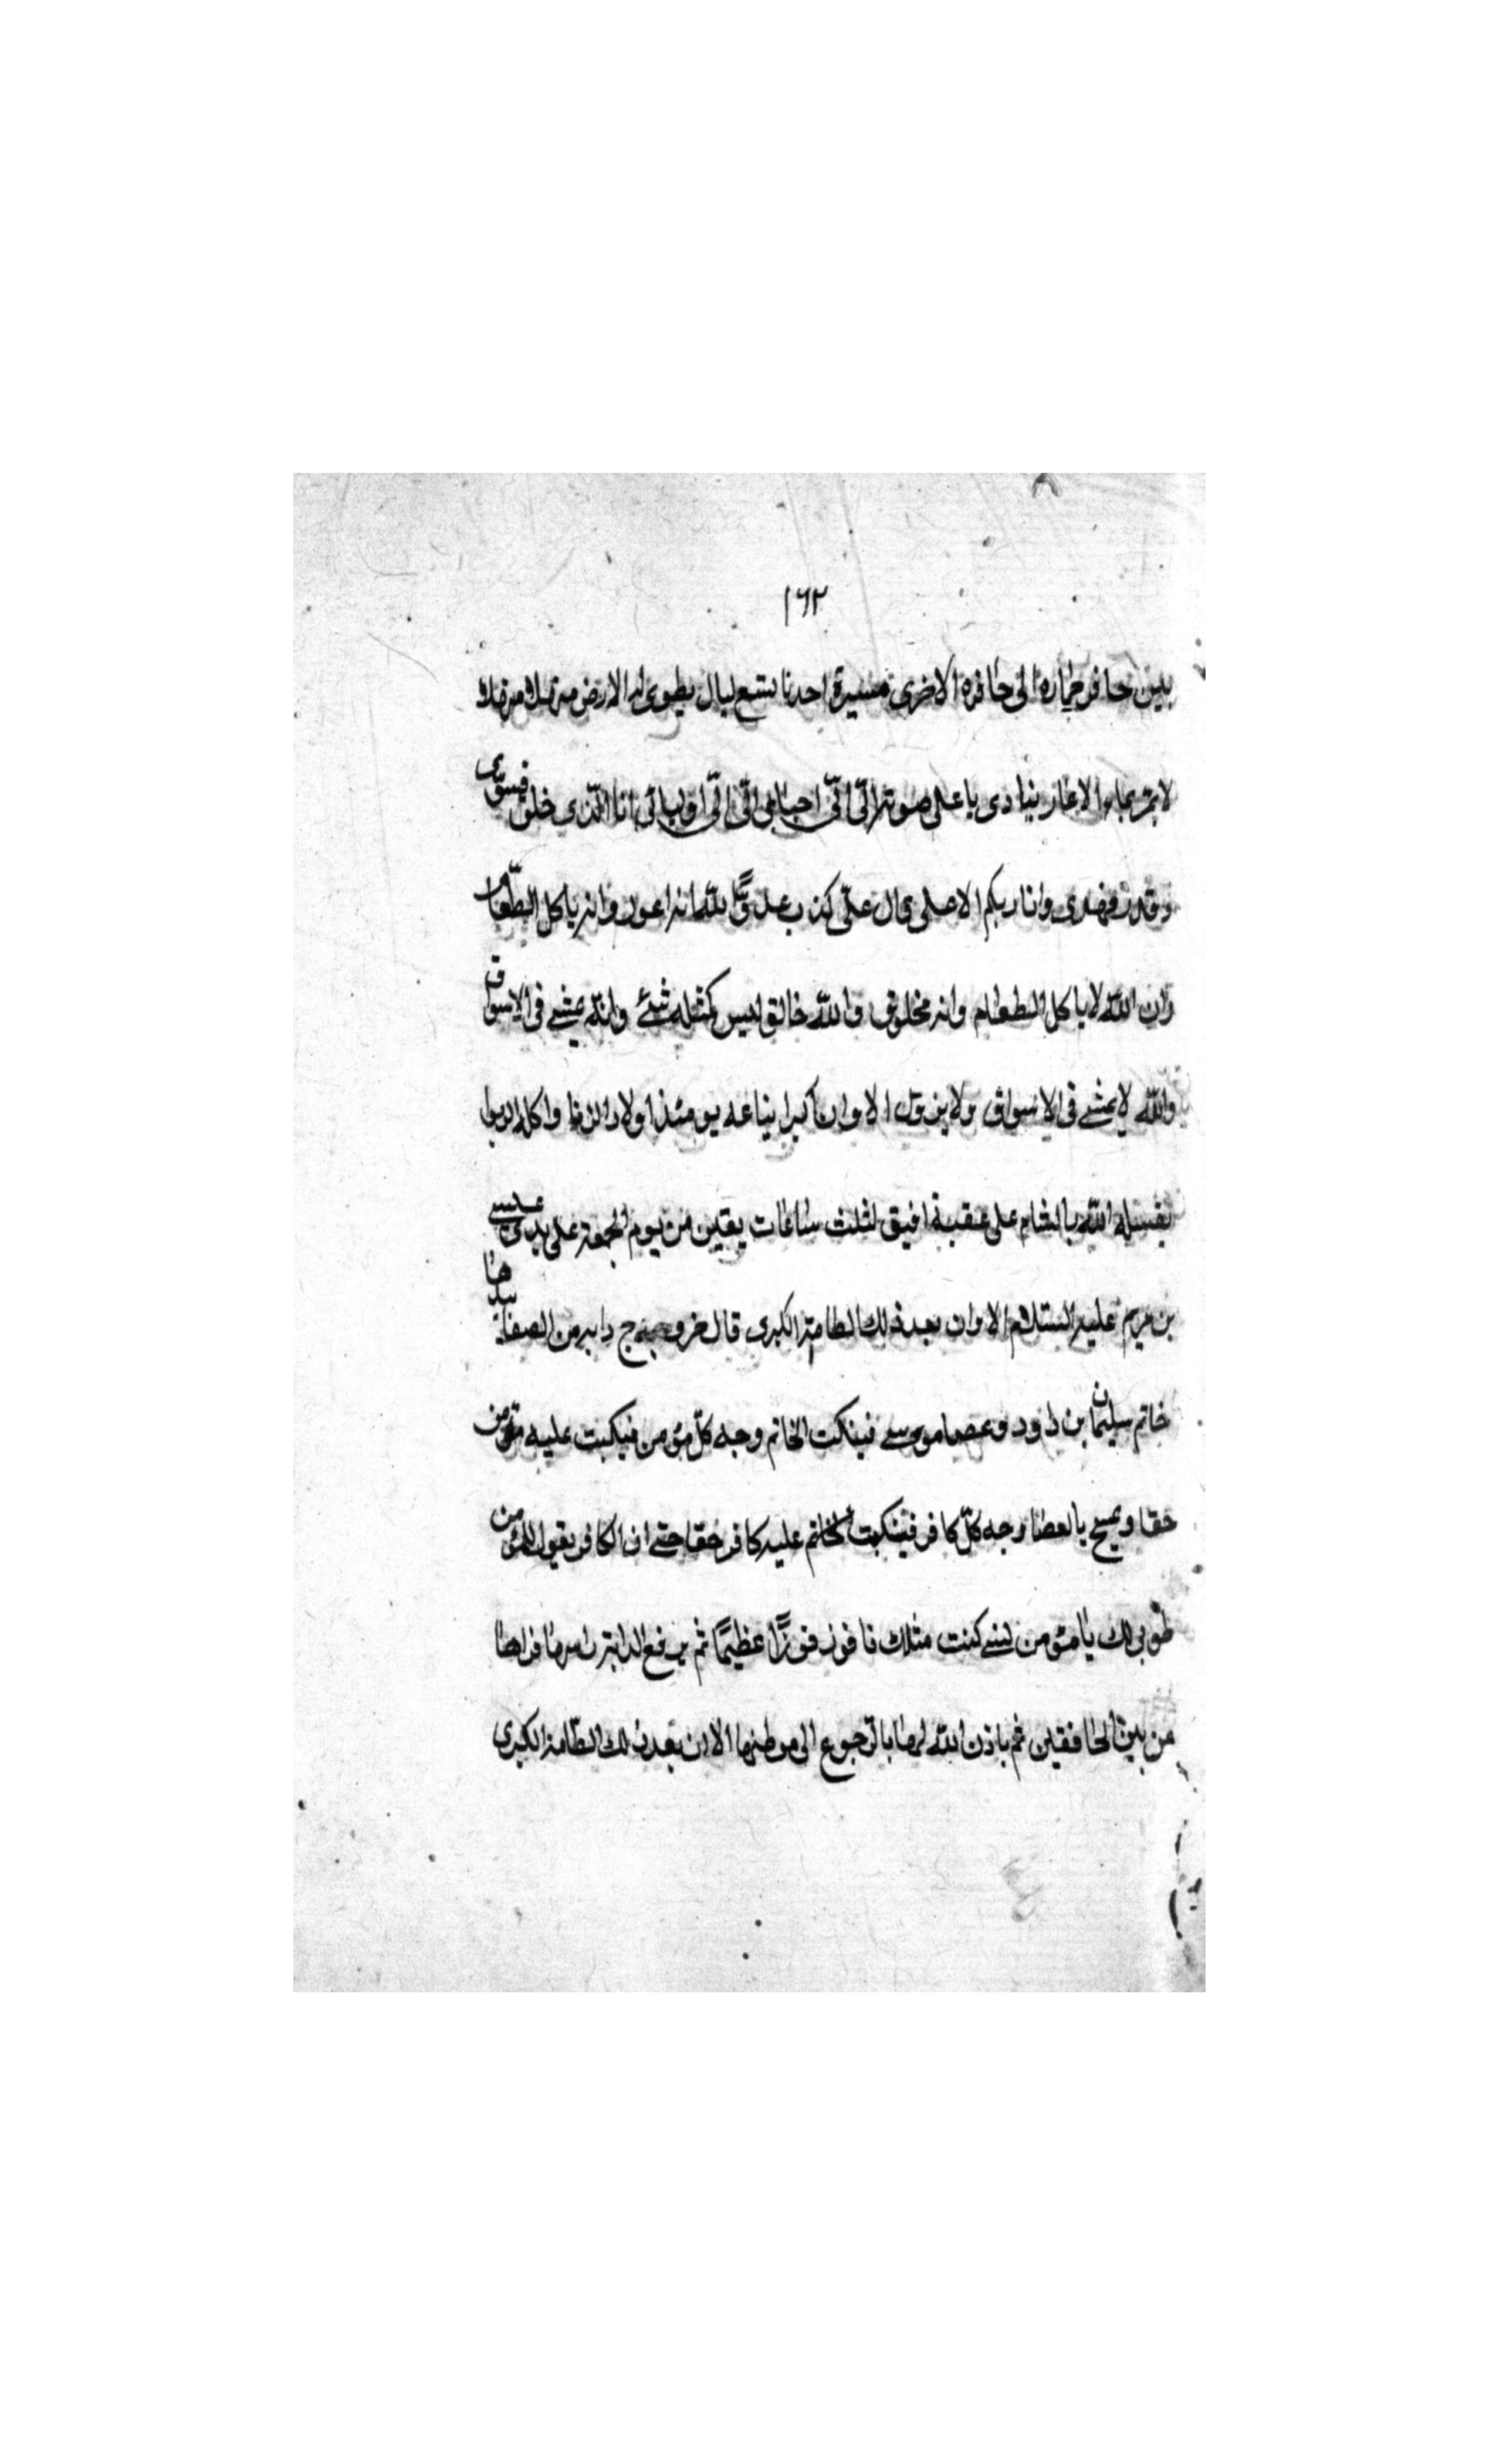 ١٦٢
بين حافر حماره الى حافره الاخرى مسيرة احدنا تسع ليال يطوى له الارض منهلا منهلا
لا يمر بماء الا غار ينادى باعلى صوته الىّ الىّ احبائى الىّ الىّ اوليائى انا الّذى خلق فسوّى
وقدر فهدى وانا ربكم الاعلى قال علىّ كذب عدوّ اللّه انه اعور وانه ياكل الطّعام
وان اللّه لا ياكل الطعام وانه مخلوق واللّه خالق ليس كمثله شئ وانّه يمشى فى الاسواق
واللّه لا يمشى فى الاسواق ولا يزول الا وان اكبر اتباعه يومئذ اولاد الزنا واكله الربوا
يقتله اللّه بالشام على عقبة افيق لثلث ساعات بقين من يوم الجمعة على يدى عيسى
بن مريم عليه السّلام الا وان بعد ذلك الطامة الكبرى قال خروج دابه من الصفا بيدها
خاتم سليمان بن داود وعصا موسى فينكت الخاتم وجه كلّ مؤمن فيكبت عليه مؤمن
حقا ويمسح بالعصا وجه كلّ كافر فينكبت الخاتم عليه كافر حقا حتى ان الكافر يقول للمؤمن
طوبى لك يا مؤمن ليتنى كنت مثلك فافوز فوزًا عظيمًا ثم يرفع الدابة راسها فراها
من بين الخافقين ثم ياذن اللّه لها بالرجوع الى موطنها الا ان بعد ذلك الطّامة الكبرى